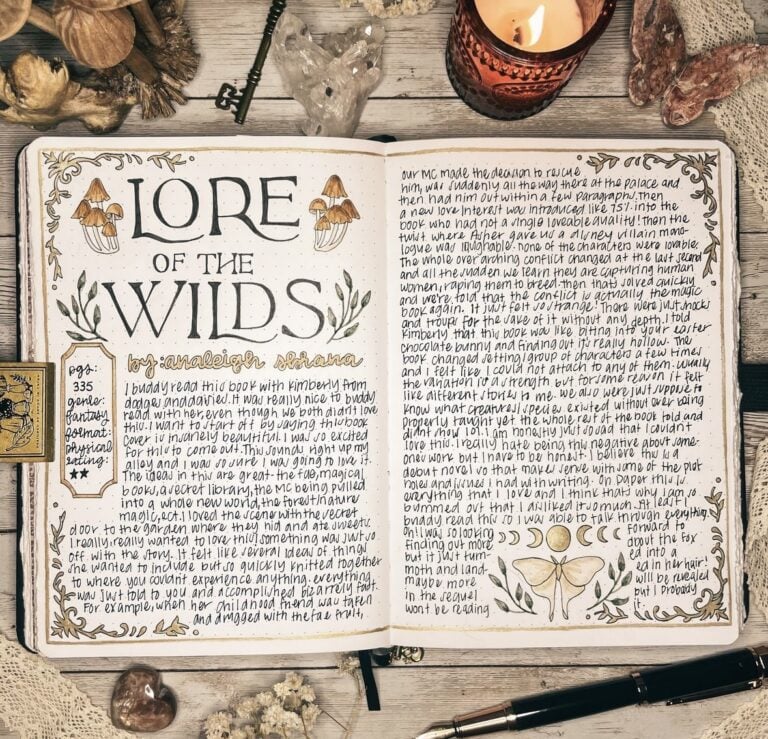 LORE
OF THE
WILDS
by: analeigh sbrana
pgs:
335
genre:
fantasy
format:
physical
rating:
★★
I buddy read this book with Kimberly from
dodges and dairies. It was really nice to buddy
read with her, even though we both didn't love
this. I want to start off by saying this book
cover is insanely beautiful. I was so excited
for this to come out. This sounds right up my
alley and I was so sure I was going to love it.
The ideas in this are great - the fae, magical
books, a secret library, the MC being pulled
into a whole new world, the forest/nature
magic, etc. I loved the scene with the secret
door to the garden where they hid and ate sweets.
I really, really wanted to love this, something was just so
off with the story. It felt like several ideas of things
she wanted to include but so quickly knitted together
to where you couldn't experience anything. everything
was just told to you and accomplished bizarrely fast.
For example, when her childhood friend was taken
and drugged with the fae fruit,
our MC made the decision to rescue
him, was suddenly all the way there at the palace and
then had him out within a few paragraphs. Then
a new love interest was introduced like 75% into the
book who had not a single loveable quality! Then the
twist where Asher gave us a disney villain mono-
logue was laughable. none of the characters were lovable.
The whole over arching conflict changed at the last second
and all the sudden we learn they are capturing human
women, raping them to breed then that's solved quickly
and we're told that the conflict is actually the magic
book again. It just felt so strange! There were just
and tropes for the sake of it without any depth. I told
Kimberly that this book was like biting into your easter
chocolate bunny and finding out it's really hollow. The
book changed setting/group of characters a few times
and I felt like I could not attach to any of them. usually
the variation is a strength but for some reason it felt
like different stories to me. We also were just suppose to
know what creatures/species existed without ever being
properly taught yet the whole rest of the book told and
didn't show lol. I am honestly just so sad that I couldn't
love this. I really hate being this negative about some-
ones work but I have to be honest. I believe this is a
debut novel so that makes sense with some of the plot
holes and issues I had with writing. On paper this is
everything that I love and I think that's why I am so
bummed out that I disliked it so much. At least I
buddy read this so I was able to talk through everything.
oh! I was so looking forward to
finding out more about the fox
but it just turn- ed into a
moth and land- ed in her hair!
maybe more will be revealed
in the sequel but I probably
won't be reading it.